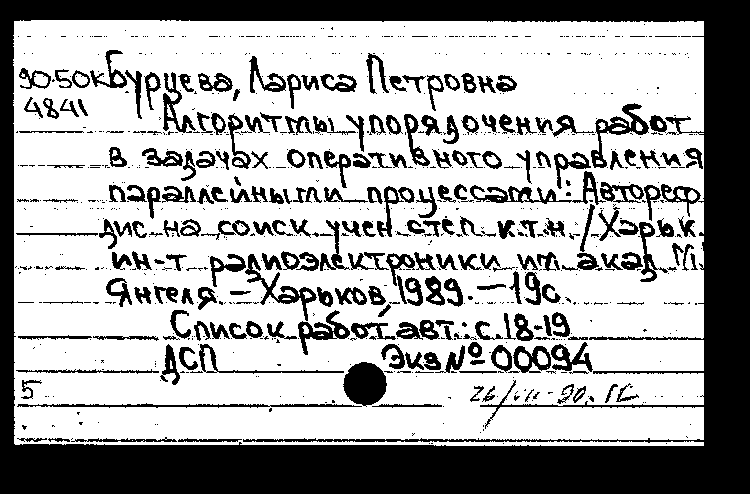 90-50к Бурцева, Лариса Петровна
4841 Алгоритмы упорядочения работ
в задачах оперативного управления
параллейными процессами: Автореф
дис на соиск учен степ к.т.н. / Харьк.
ин-т радиоэлектроники им. акад М.
Янгеля – Харьков, 1989. – 19с.
Список работ авт.: с. 18-19
ДСП Экз № 00094
5